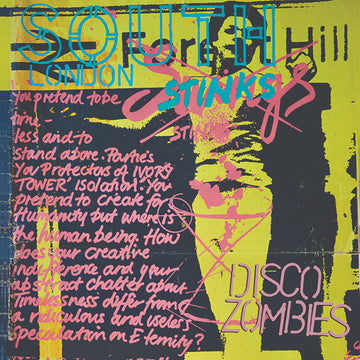 SOUTH
LONDON
Hill
STINKS
STINKS
You pretend to be
time
less and to
stand above. Parties
You Protectors of IVORY
TOWER' ISOLATION. You
pretend to create for
Humanity but where is
the human being. How
does your creative
indifference and your
abstract chatter about
Timelessness differ from
a ridiculous and useless
speculation on Eternity?
DISCO
ZOMBIES